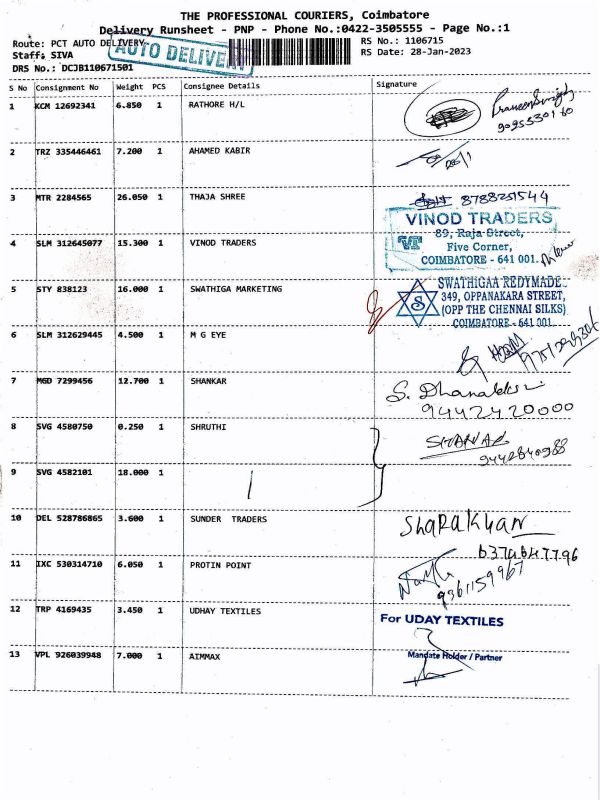 THE PROFESSIONAL COURIERS, Coimbatore
Delivery Runsheet - PNP - Phone No.:0422-3505555 - Page No.:1
Route: PCT AUTO DELIVERY
AUTO DELIVERY
RS No.: 1106715
Staff: SIVA
RS Date: 28-Jan-2023
DRS No.: DCJB110671501
S No Consignment No Weight PCS Consignee Details Signature
1 KCM 12692341 6.850 1 RATHORE H/L
2 TRZ 335446461 7.200 1 AHAMED KABIR
3 MTR 2284565 26.050 1 THAJA SHREE
VINOD TRADERS
89, Raja Street,
VT
Five Corner,
COIMBATORE - 641 001.
4 SLM 312645077 15.300 1 VINOD TRADERS
5 STY 838123 16.000 1 SWATHIGA MARKETING
S
SWATHIGAA REDYMADE
349, OPPANAKARA STREET,
(OPP THE CHENNAI SILKS)
COIMBATORE - 641 001.
6 SLM 312629445 4.500 1 M G EYE
7 MGD 7299456 12.700 1 SHANKAR
9442420000
8 SVG 4580750 0.250 1 SHRUTHI
9 SVG 4582101 18.000 1
10 DEL 528786865 3.600 1 SUNDER TRADERS
SHARAKHAN
6374647796
11 IXC 530314710 6.050 1 PROTIN POINT
9361159967
12 TRP 4169435 3.450 1 UDHAY TEXTILES
For UDAY TEXTILES
Mandate Holder / Partner
13 VPL 926039948 7.000 1 AIMMAX